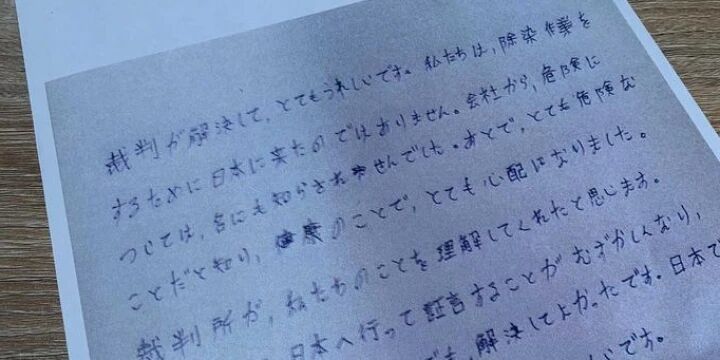 裁判が解決して、とてもうれしいです。私たちは、除染作業を
するために日本に来たのではありません。会社から、危険に
ついては、なにも知らされませんでした。あとで、とても危険な
ことだと知り、健康のことで、とても心配になりました。
裁判所が、私たちのことを理解してくれたと思います。
日本へ行って証言することがむずかしくなり、
でも、解決してよかったです。日本で
です。